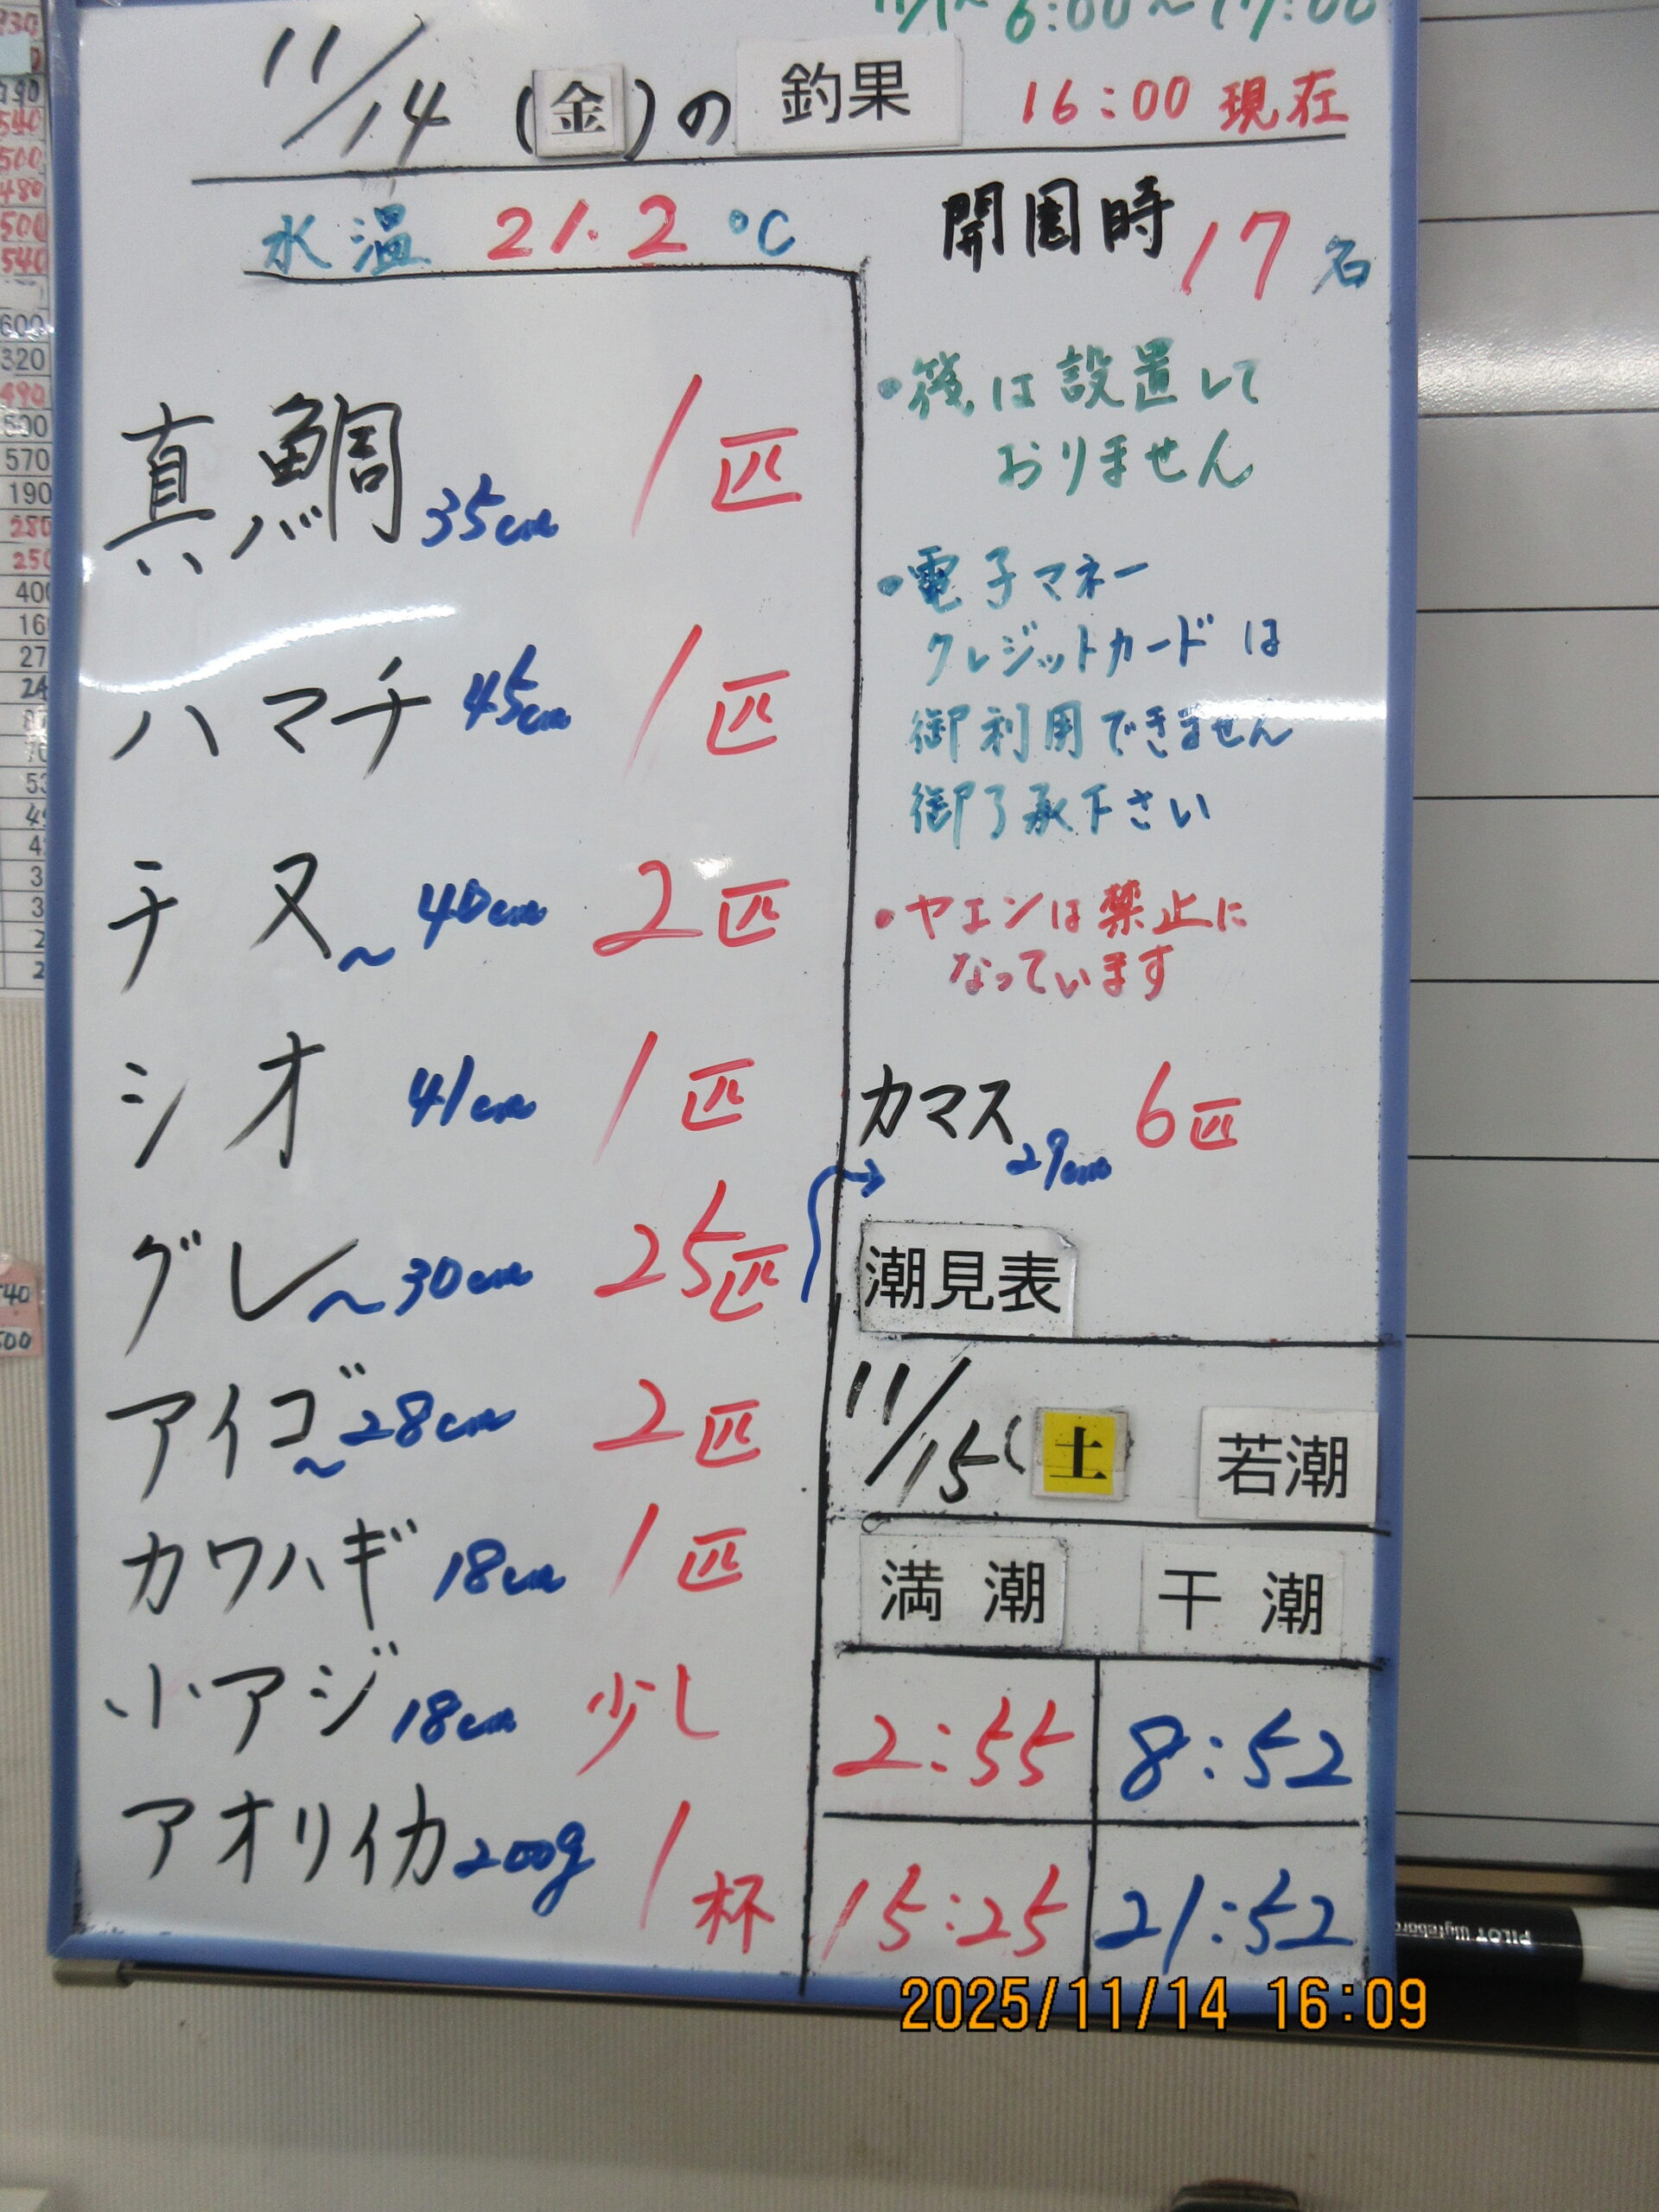 11/1~ 6:00~17:00
11/14 (金)の 釣果 16:00 現在
水温 21.2 ℃
開園時 17名
真鯛 35cm 1匹
ハマチ 45cm 1匹
チヌ ~40cm 2匹
シオ 41cm 1匹
グレ ~30cm 25匹
アイゴ ~28cm 2匹
カワハギ 18cm 1匹
小アジ 18cm 少し
アオリイカ 200g 1杯
・筏は設置して
おりません
・電子マネー
クレジットカードは
御利用できません
御了承下さい
・ヤエンは禁止に
なっています
カマス 29cm 6匹
潮見表
11/15 (土 若潮
満潮 干潮
2:55 8:52
15:25 21:52
PILOT Wyteboard
2025/11/14 16:09